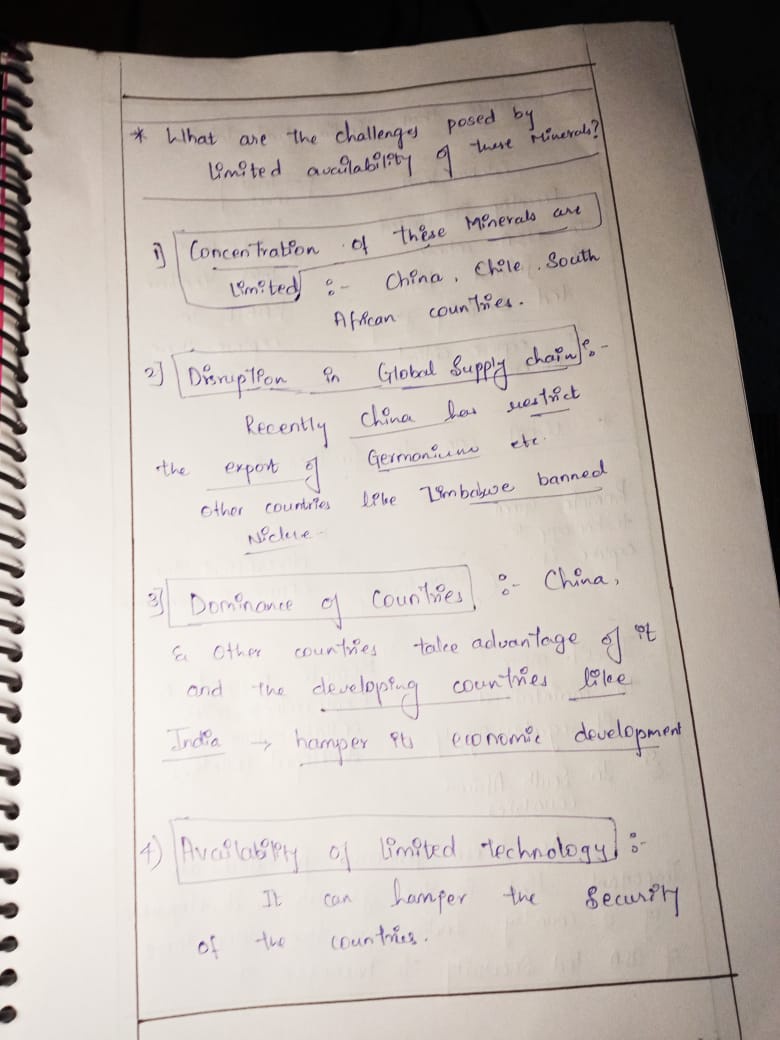 * What are the challenges posed by
limited availability of these Minerals?
1] Concentration of these Minerals are
Limited :- China, Chile, South
African countries.
2] Disruption in Global Supply chain :-
Recently China has restrict
the export of Germanium etc.
Other countries like Zimbabwe banned
3] Dominance of Countries :- China,
& Other countries take advantage of it
and the developing countries like
India → hamper its economic development
4) Availability of limited technology :-
It can hamper the Security
of the countries.